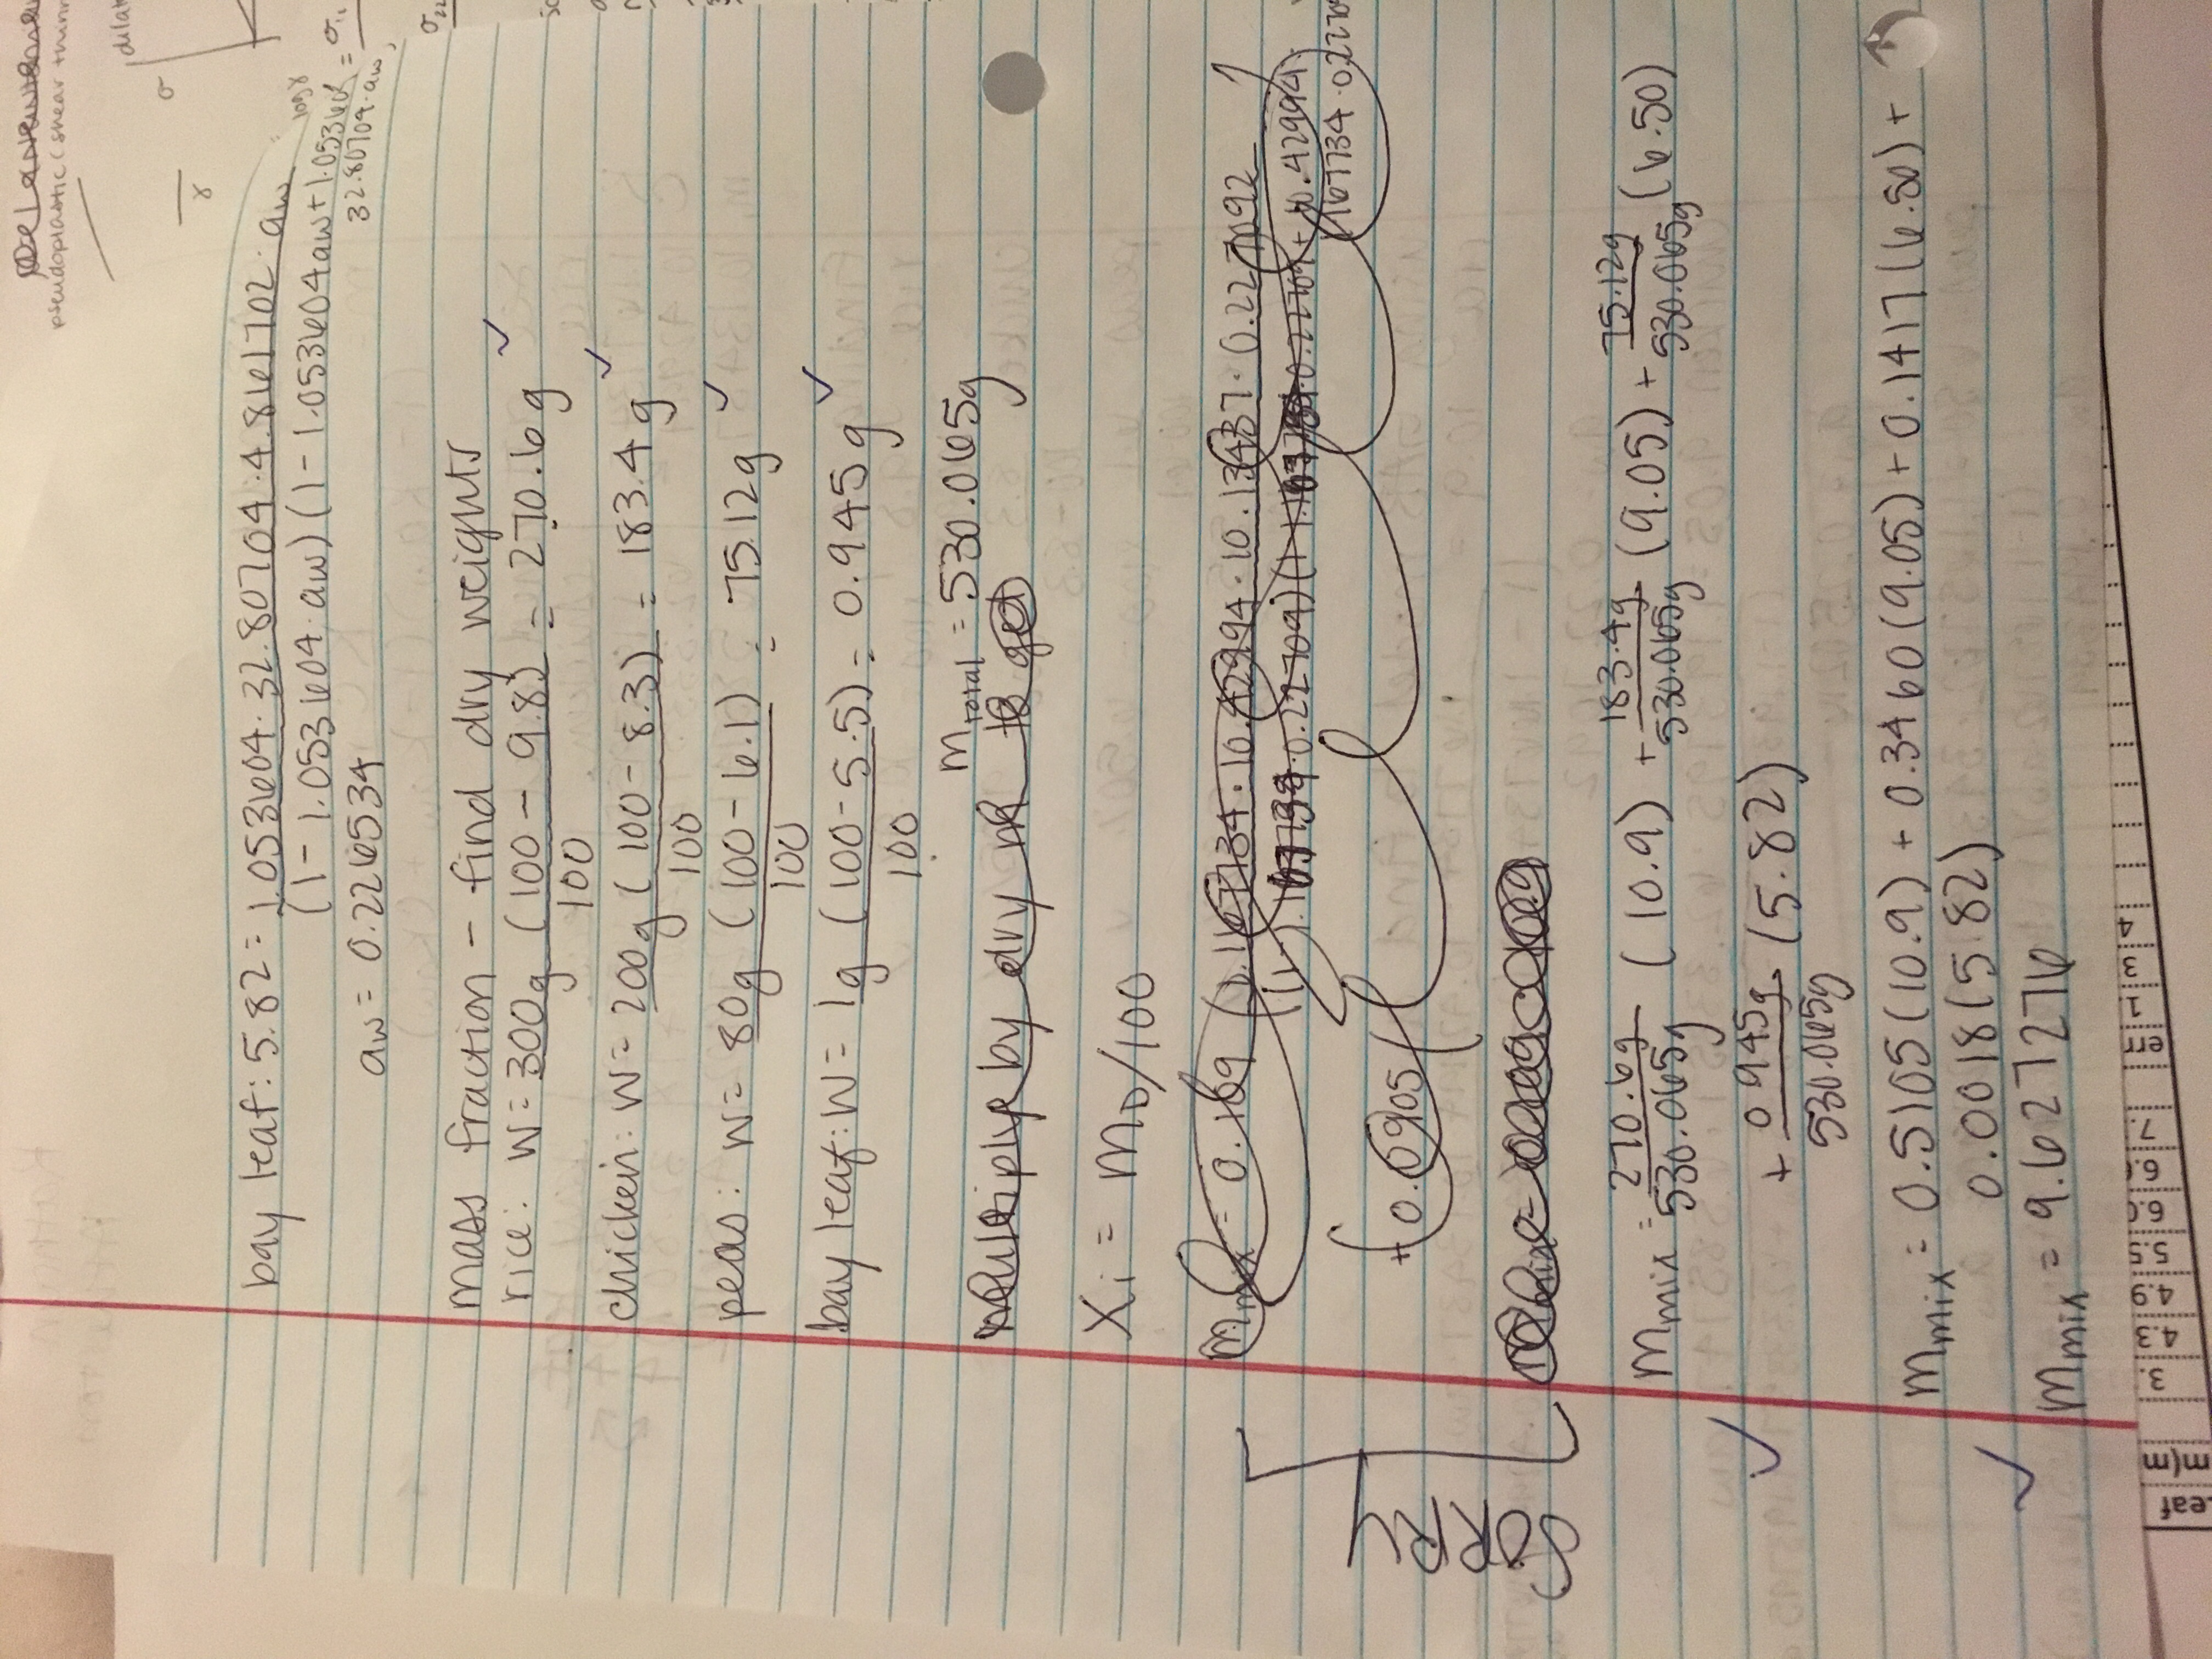 pseudoplastic (shear thinn
dilat
σ
γ
bay leaf: 5.82 = 1.053604 · 32.80704 · 4.861702 · aw
(1 - 1.053604 · aw) (1 - 1.053604aw + 1.053604
32.80704 · aw)
logγ
= σ11
aw = 0.226534
σ22
mass fraction - find dry weights
rice: W = 300g (100 - 9.8) = 270.6g ✓
100
chicken: W = 200g (100 - 8.3) = 183.4g ✓
100
peas: W = 80g (100 - 6.1) = 75.12g ✓
100
bay leaf: W = 1g (100 - 5.5) = 0.945g ✓
100
mtotal = 530.065g
multiply by dry m to get
Xi = mD/100
SORRY
mmix = 0.169 (1.167734 · 10.42994 · 10.13437 · 0.227092
(1 - 1.167734 · 0.22709) (1 - 1.167734 · 0.22709 + 10.42994 ·
1.167734 · 0.2270
+ 0.0905 (
mmix = 270.6g/530.065g (10.9) + 183.4g/530.065g (9.05) + 75.12g/530.065g (6.50)
✓ + 0.945g/530.065g (5.82)
mmix = 0.5105(10.9) + 0.3460(9.05) + 0.1417(6.50) +
0.0018(5.82)
✓ mmix = 9.627276
eaf
m(m
3.
4.3
4.9
5.5
6.0
6.6
7.
err
1.
3
4